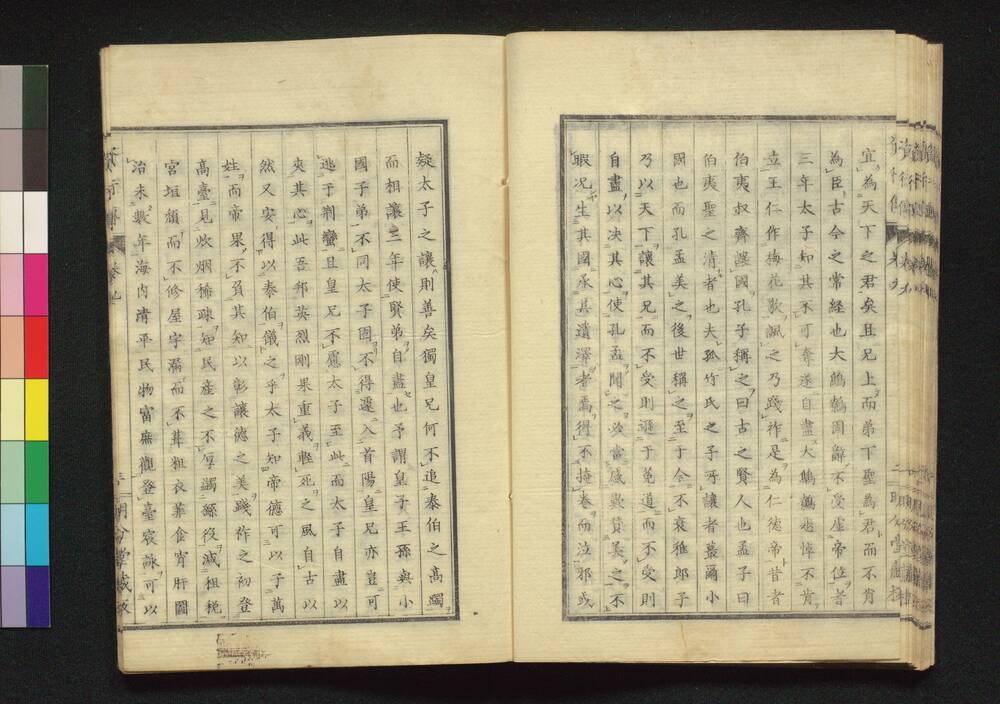 宜為天下之君矣且兄上而弟下聖為君而不肖
為臣古今之常経也大鷦鷯固辭不受虛帝位者
三年太子知其不可奪遂自盡大鷦鷯悲悼不肯
立王仁作梅花歌諷之乃踐祚是為仁德帝昔者
伯夷叔齊遜國孔子稱之曰古之賢人也孟子曰
伯夷聖之清者也夫孤竹氏之子所讓者蕞爾小
國也而孔孟美之後世稱之至于今不衰稚郎子
乃以天下讓其兄而不受則遜于菟道而不受則
自盡以决其心使孔孟聞之必當感歎賛美之不
暇况生其國承其遺澤者焉得不掩卷而泣邪或
疑太子之讓則善矣獨皇兄何不追泰伯之高躅
而相讓三年使賢弟自盡也予謂皇子王孫與小
國子弟不同太子固不得遽入首陽皇兄亦豈可
逃于荆蠻且皇兄不愿太子至此而太子自盡以
夾其心此吾邦英烈剛果重義輕死之風自古以
然又安得以泰伯儀之乎太子知帝德可以子萬
姓而帝果不負其知以彰讓德之美踐祚之初登
高臺見炊烟稀疎知民産之不厚蠲繇役減租稅
宮垣頹而不修屋宇漏而不葺粗衣菲食宵肝圖
治未數年海内清平民物富庶觀登臺宸詠可以